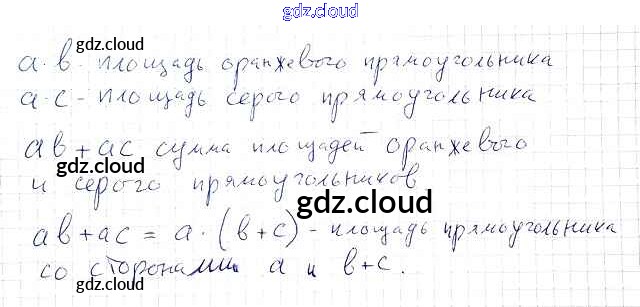 gdz.cloud
gdz.cloud
a·b - площадь оранжевого прямоугольника
gdz.cloud
a·c - площадь серого прямоугольника
ab + ac сумма площадей оранжевого
gdz.cloud
и серого прямоугольников
gdz.cloud
ab + ac = a·(b+c) - площадь прямоугольника
со сторонами a и b+c.
gdz.cloud